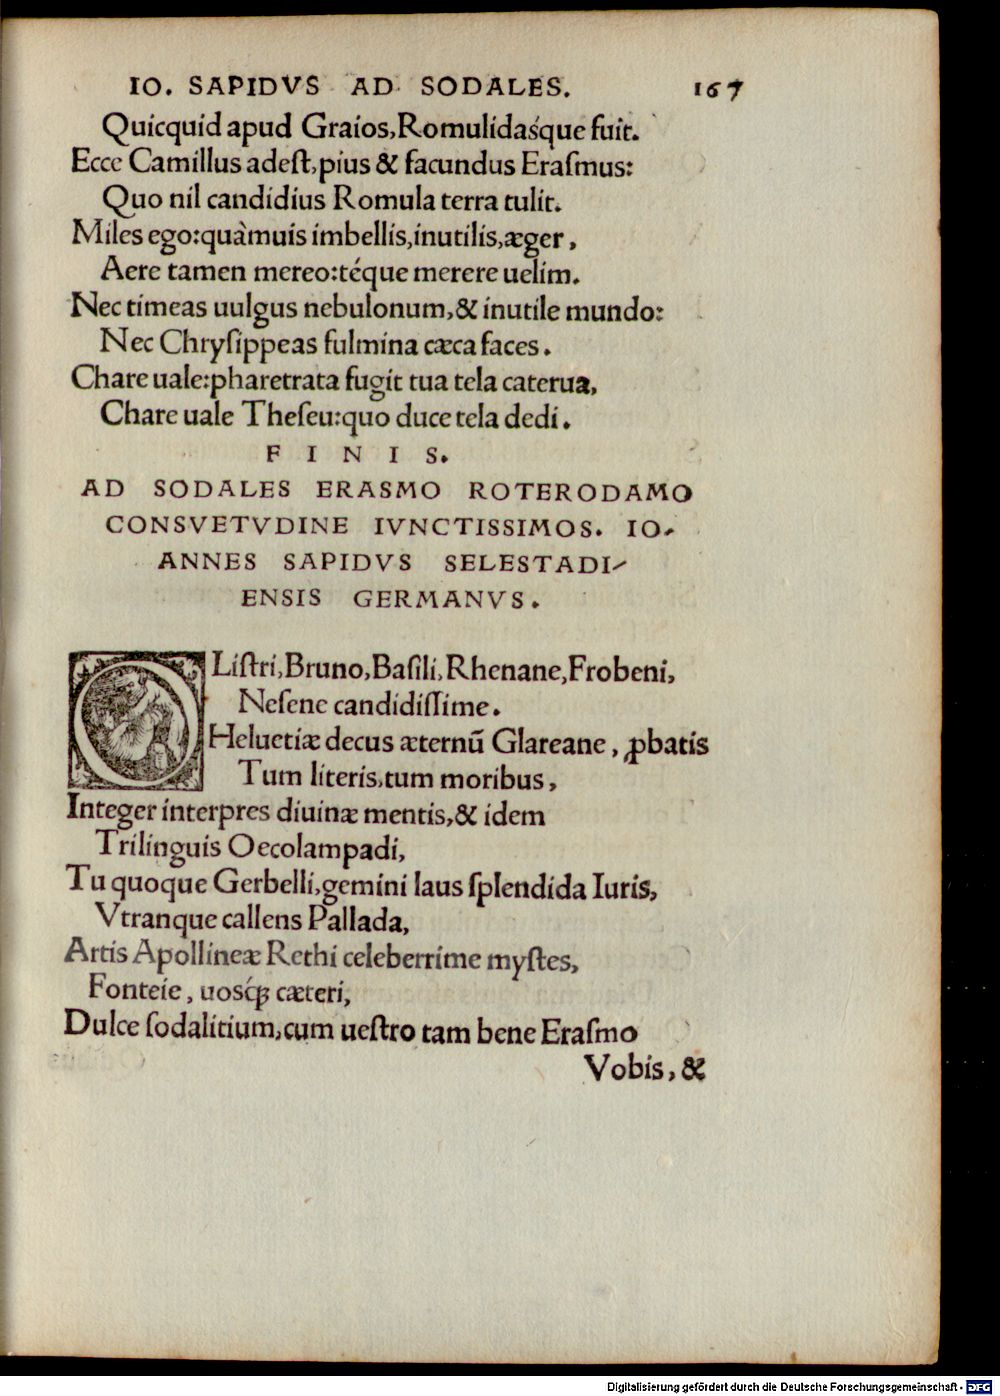 IO. SAPIDVS AD SODALES. 167
Quicquid apud Graios,Romulidasq́ue fuit.
Ecce Camillus adeſt,pius & facundus Eraſmus:
Quo nil candidius Romula terra tulit.
Miles ego:quàmuis imbellis,inutilis,æger,
Aere tamen mereo:téque merere uelim.
Nec timeas uulgus nebulonum,& inutile mundo:
Nec Chryſippeas fulmina cæca faces.
Chare uale:pharetrata fugit tua tela caterua,
Chare uale Theſeu:quo duce tela dedi.
F I N I S.
AD SODALES ERASMO ROTERODAMO
CONSVETVDINE IVNCTISSIMOS. IO-
ANNES SAPIDVS SELESTADI-
ENSIS GERMANVS.
OLiſtri,Bruno,Baſili,Rhenane,Frobeni,
Neſene candidiſſime.
Heluetiæ decus æternū Glareane, ꝓbatis
Tum literis,tum moribus,
Integer interpres diuinæ mentis,& idem
Trilinguis Oecolampadi,
Tu quoque Gerbelli,gemini laus ſplendida Iuris,
Vtranque callens Pallada,
Artis Apollineæ Rethi celeberrime myſtes,
Fonteie, uosq́ꝫ cæteri,
Dulce ſodalitium,cum ueſtro tam bene Eraſmo
Vobis, &
Digitalisierung gefördert durch die Deutsche Forschungsgemeinschaft - DFG